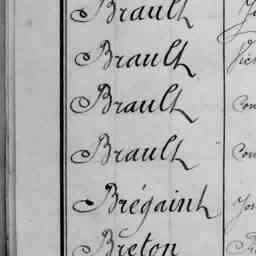 Brault
Brault
Brault
Brault
Brégaint
Breton